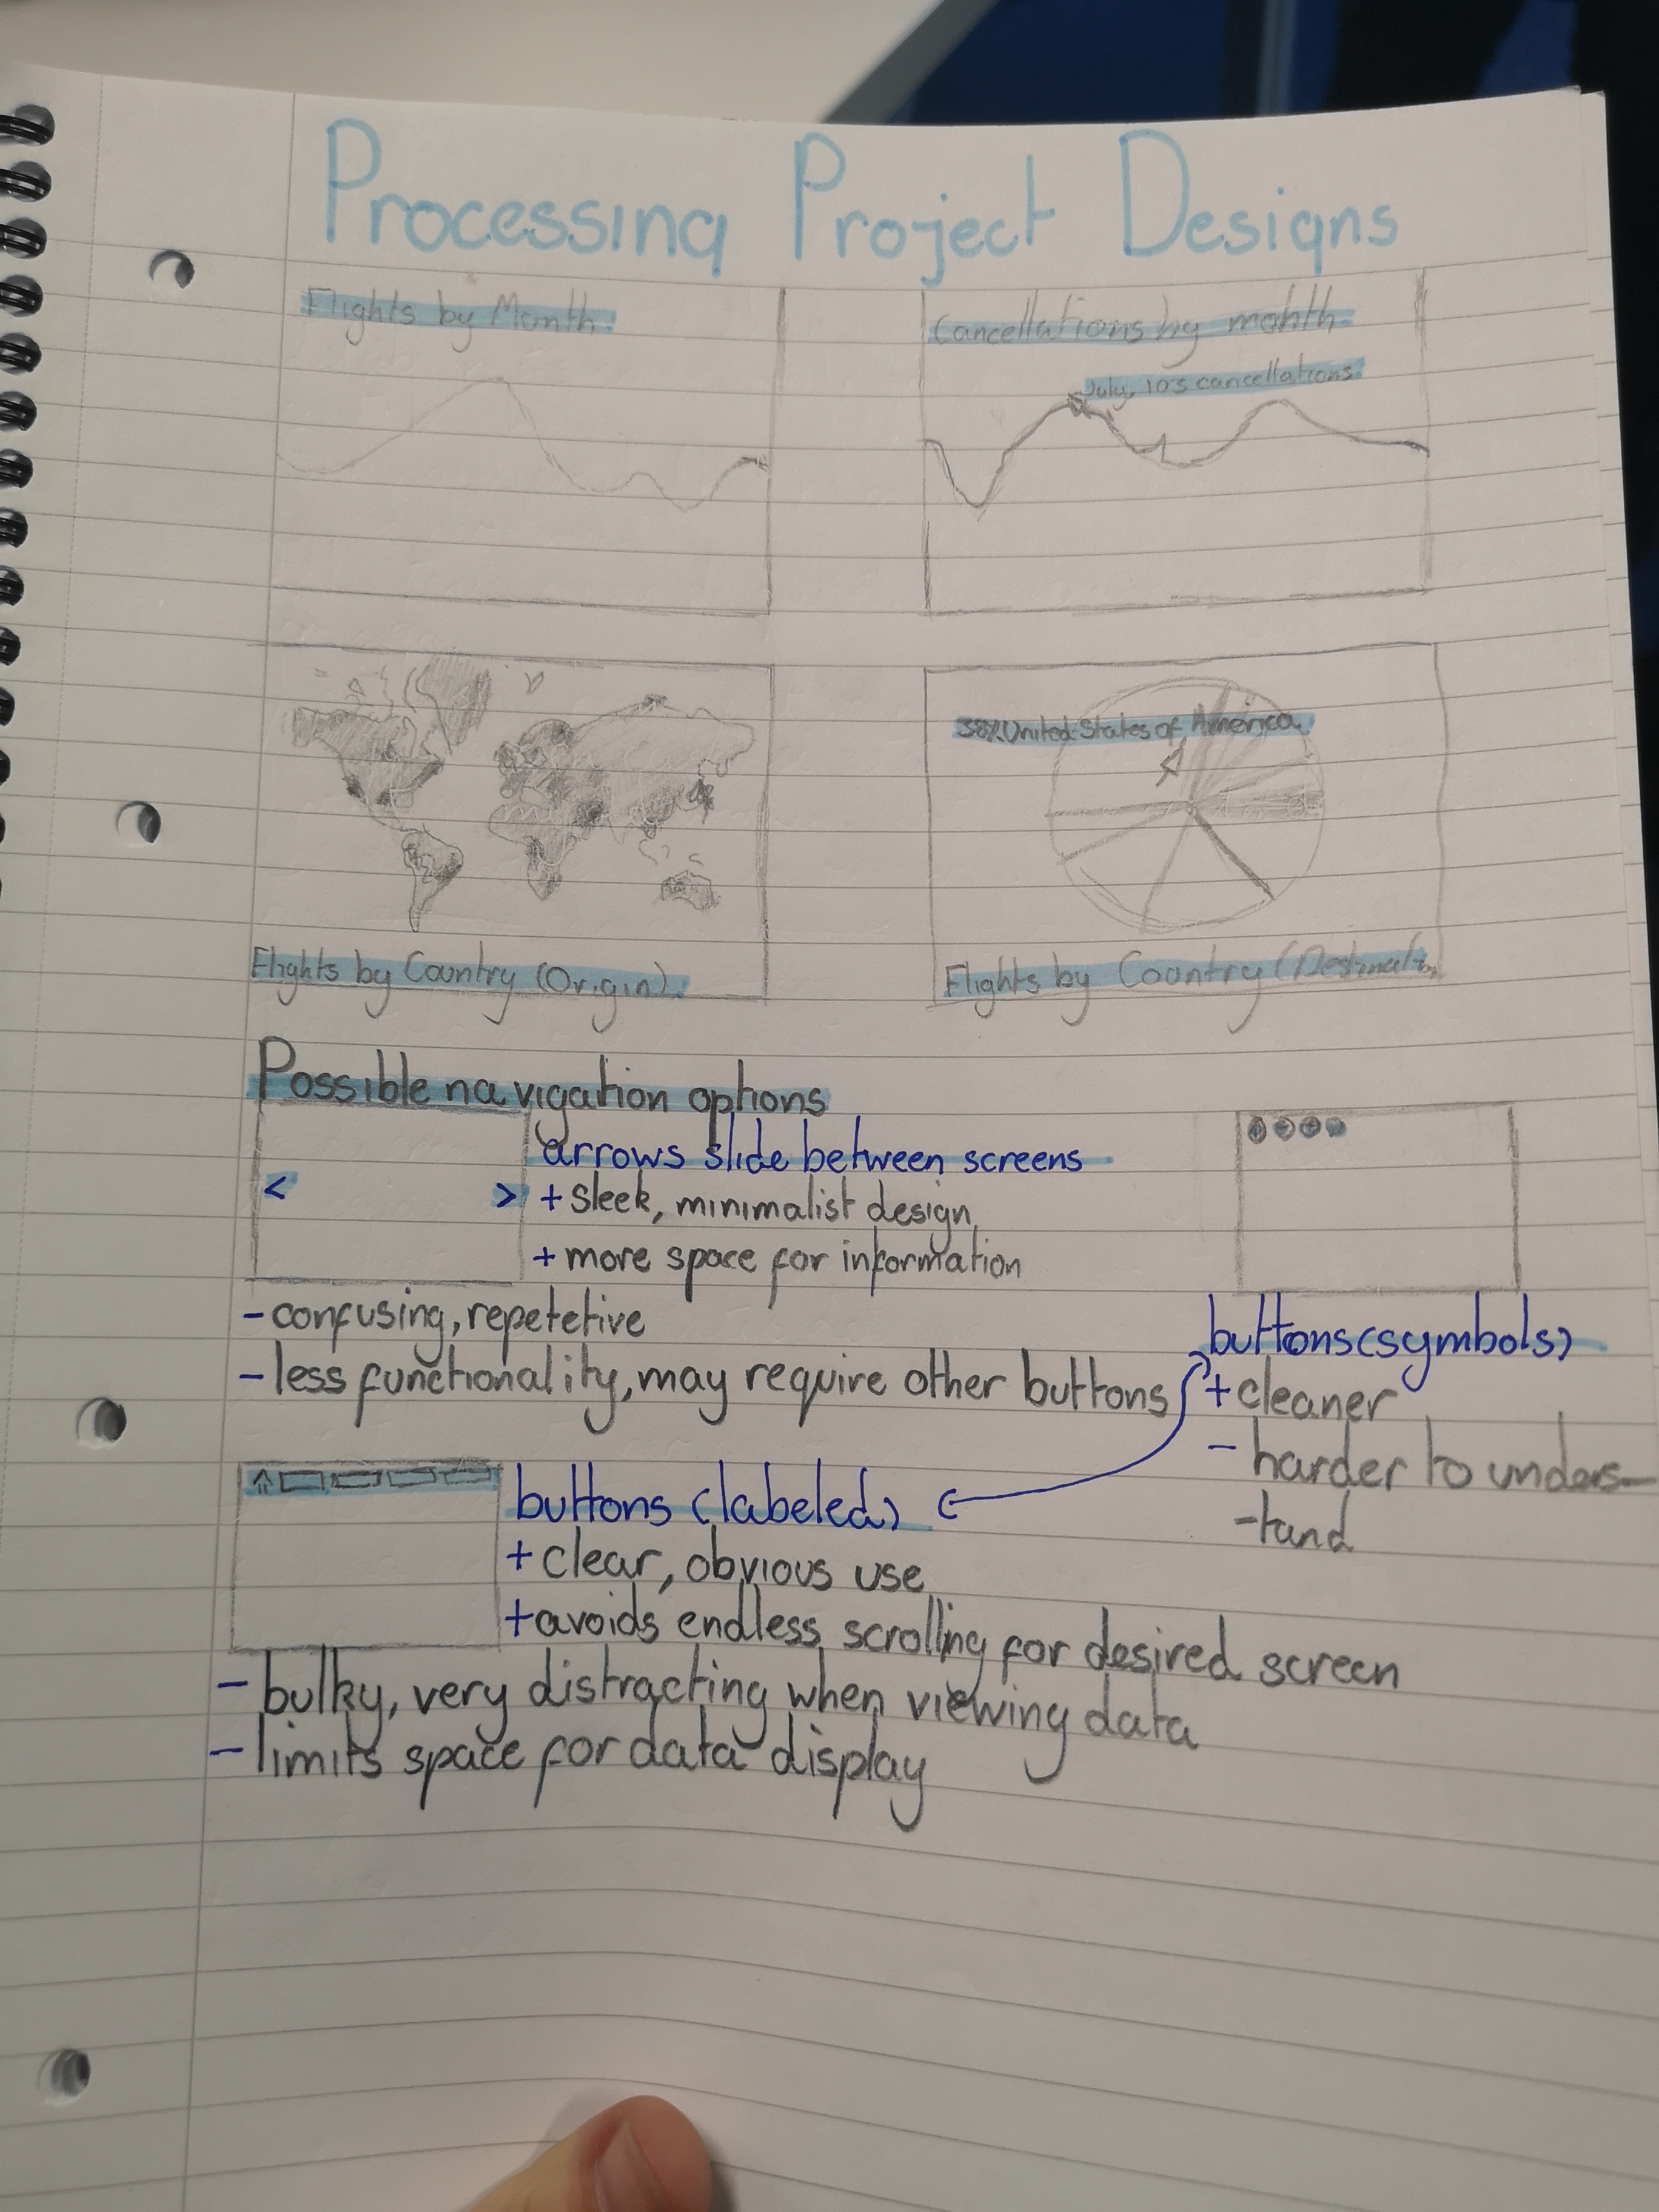 Processing Project Designs
Flights by Month.
Cancellations by month.
July, 103 cancellations.
38% United States of America.
Flights by Country (Origin).
Flights by Country (Destinat
Possible navigation options
< >
arrows slide between screens
+ sleek, minimalist design
+ more space for information
- confusing, repetetive
- less functionality, may require other buttons
buttons (symbols)
+ cleaner
- harder to unders-
-tand
buttons (labeled)
+ clear, obvious use
+ avoids endless scrolling for desired screen
- bulky, very distracting when viewing data
- limits space for data display